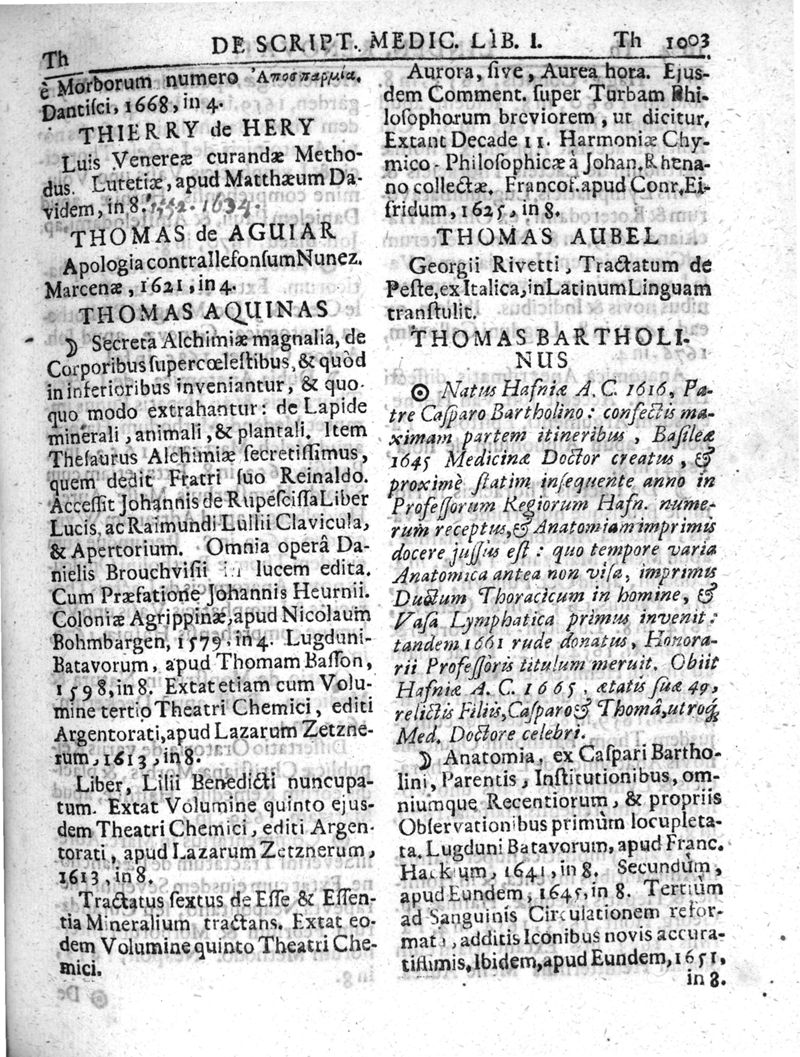 Th
DE SCRIPT. MEDIC. LIB. I.
Th 1003
è Morborum numero Ἀποσπαρμία.
Dantiſci, 1668, in 4.
THIERRY de HERY
Luis Venereæ curandæ Metho-
dus. Lutetiæ, apud Matthæum Da-
videm, in 8. 1552. 1634.
THOMAS de AGUIAR
Apologia contra IlefonſumNunez.
Marcenæ, 1621, in 4.
THOMAS AQUINAS
☽ Secreta Alchimiæ magnalia, de
Corporibus ſupercœleſtibus, & quòd
in inferioribus inveniantur, & quo-
quo modo extrahantur: de Lapide
minerali, animali, & plantali. Item
Theſaurus Alchimiæ ſecretiſſimus,
quem dedit Fratri ſuo Reinaldo.
Acceſſit Johannis de Rupeſciſſa Liber
Lucis, ac Raimundi Lullii Clavicula,
& Apertorium. Omnia operâ Da-
nielis Brouchviſii in lucem edita.
Cum Præfatione Johannis Heurnii.
Coloniæ Agrippinæ, apud Nicolaum
Bohmbargen, 1579, in 4. Lugduni-
Batavorum, apud Thomam Baſſon,
1598, in 8. Extat etiam cum Volu-
mine tertio Theatri Chemici, editi
Argentorati, apud Lazarum Zetzne-
rum, 1613, in 8.
Liber, Lilii Benedicti nuncupa-
tum. Extat Volumine quinto ejus-
dem Theatri Chemici, editi Argen-
torati, apud Lazarum Zetznerum,
1613, in 8.
Tractatus ſextus de Eſſe & Eſſen-
tia Mineralium tractans. Extat eo-
dem Volumine quinto Theatri Che-
mici.
Aurora, ſive, Aurea hora. Ejus-
dem Comment. ſuper Turbam Phi-
loſophorum breviorem, ut dicitur,
Extant Decade 11. Harmoniæ Chy-
mico-Philoſophicæ à Johan. Rhena-
no collectæ. Francof. apud Conr. Ei-
fridum, 1625, in 8.
THOMAS AUBEL
Georgii Rivetti, Tractatum de
Peſte, ex Italica, in Latinum Linguam
tranſtulit.
THOMAS BARTHOLI-
NUS
☉ Natus Hafniæ A. C. 1616, Pa-
tre Caſparo Bartholino: confectis ma-
ximam partem itineribus, Baſileæ
1645 Medicinæ Doctor creatus, &
proximè ſtatim inſequente anno in
Profeſſorum Regiorum Hafn. nume-
rum receptus, & Anatomiam imprimis
docere juſſus eſt: quo tempore varia
Anatomica antea non viſa, imprimis
Ductum Thoracicum in homine, &
Vaſa Lymphatica primus invenit:
tandem 1661 rude donatus, Honora-
rii Profeſſoris titulum meruit. Obiit
Hafniæ A. C. 1665, ætatis ſuæ 49,
relictis Filiis, Caſparo & Thomâ, utroq́;
Med. Doctore celebri.
☽ Anatomia, ex Caſpari Bartho-
lini, Parentis, Inſtitutionibus, om-
niumque Recentiorum, & propriis
Obſervationibus primùm locupleta-
ta. Lugduni Batavorum, apud Franc.
Hackium, 1641, in 8. Secundùm,
apud Eundem, 1645, in 8. Tertiùm
ad Sanguinis Circulationem refor-
mata, additis Iconibus novis accura-
tiſſimis, Ibidem, apud Eundem, 1651,
in 8.